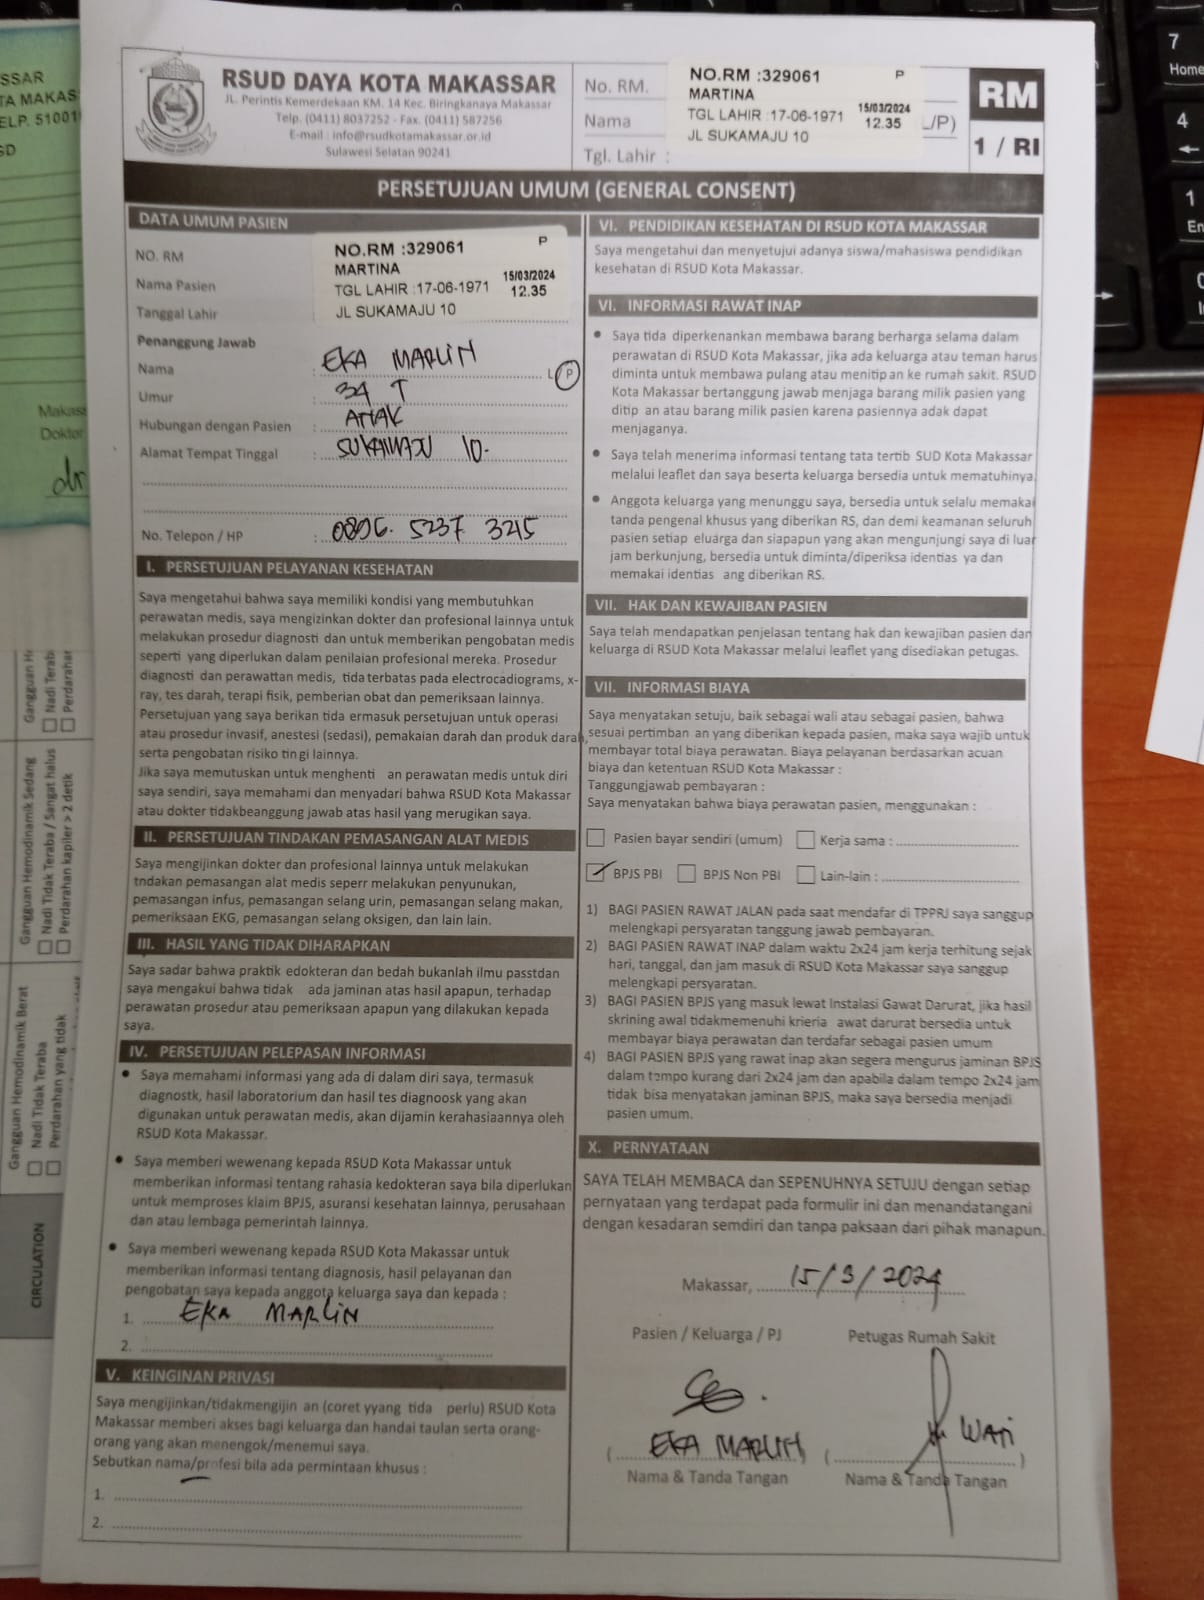 RSUD DAYA KOTA MAKASSAR
JL. Perintis Kemerdekaan KM. 14 Kec. Biringkanaya Makassar
Telp. (0411) 8037252 - Fax. (0411) 587256
E-mail : info@rsudkotamakassar.or.id
Sulawesi Selatan 90241
No. RM.
Nama
Tgl. Lahir :
NO.RM :329061 P
MARTINA
TGL LAHIR :17-06-1971 15/03/2024
JL SUKAMAJU 10 12.35
L/P)
RM
1 / RI
PERSETUJUAN UMUM (GENERAL CONSENT)
DATA UMUM PASIEN
NO. RM
Nama Pasien
Tanggal Lahir
NO.RM :329061 P
MARTINA
TGL LAHIR :17-06-1971 15/03/2024
JL SUKAMAJU 10 12.35
Penanggung Jawab
Nama : EKA MARLIN L/P
Umur : 34 T
Hubungan dengan Pasien : ANAK
Alamat Tempat Tinggal : SUKAMAJU 10.
No. Telepon / HP : 0896. 5237 3215
I. PERSETUJUAN PELAYANAN KESEHATAN
Saya mengetahui bahwa saya memiliki kondisi yang membutuhkan
perawatan medis, saya mengizinkan dokter dan profesional lainnya untuk
melakukan prosedur diagnosti dan untuk memberikan pengobatan medis
seperti yang diperlukan dalam penilaian profesional mereka. Prosedur
diagnosti dan perawattan medis, tida terbatas pada electrocadiograms, x-
ray, tes darah, terapi fisik, pemberian obat dan pemeriksaan lainnya.
Persetujuan yang saya berikan tida ermasuk persetujuan untuk operasi
atau prosedur invasif, anestesi (sedasi), pemakaian darah dan produk darah,
serta pengobatan risiko tin gi lainnya.
Jika saya memutuskan untuk menghenti an perawatan medis untuk diri
saya sendiri, saya memahami dan menyadari bahwa RSUD Kota Makassar
atau dokter tidakbeanggung jawab atas hasil yang merugikan saya.
II. PERSETUJUAN TINDAKAN PEMASANGAN ALAT MEDIS
Saya mengijinkan dokter dan profesional lainnya untuk melakukan
tndakan pemasangan alat medis seperr melakukan penyunukan,
pemasangan infus, pemasangan selang urin, pemasangan selang makan,
pemeriksaan EKG, pemasangan selang oksigen, dan lain lain.
III. HASIL YANG TIDAK DIHARAPKAN
Saya sadar bahwa praktik edokteran dan bedah bukanlah ilmu passtdan
saya mengakui bahwa tidak ada jaminan atas hasil apapun, terhadap
perawatan prosedur atau pemeriksaan apapun yang dilakukan kepada
saya.
IV. PERSETUJUAN PELEPASAN INFORMASI
• Saya memahami informasi yang ada di dalam diri saya, termasuk
diagnostk, hasil laboratorium dan hasil tes diagnoosk yang akan
digunakan untuk perawatan medis, akan dijamin kerahasiaannya oleh
RSUD Kota Makassar.
• Saya memberi wewenang kepada RSUD Kota Makassar untuk
memberikan informasi tentang rahasia kedokteran saya bila diperlukan
untuk memproses klaim BPJS, asuransi kesehatan lainnya, perusahaan
dan atau lembaga pemerintah lainnya.
• Saya memberi wewenang kepada RSUD Kota Makassar untuk
memberikan informasi tentang diagnosis, hasil pelayanan dan
pengobatan saya kepada anggota keluarga saya dan kepada :
1. EKA MARLIN
2.
V. KEINGINAN PRIVASI
Saya mengijinkan/tidakmengijin an (coret yyang tida perlu) RSUD Kota
Makassar memberi akses bagi keluarga dan handai taulan serta orang-
orang yang akan menengok/menemui saya.
Sebutkan nama/profesi bila ada permintaan khusus :
1.
2.
VI. PENDIDIKAN KESEHATAN DI RSUD KOTA MAKASSAR
Saya mengetahui dan menyetujui adanya siswa/mahasiswa pendidikan
kesehatan di RSUD Kota Makassar.
VI. INFORMASI RAWAT INAP
• Saya tida diperkenankan membawa barang berharga selama dalam
perawatan di RSUD Kota Makassar, jika ada keluarga atau teman harus
diminta untuk membawa pulang atau menitip an ke rumah sakit. RSUD
Kota Makassar bertanggung jawab menjaga barang milik pasien yang
ditip an atau barang milik pasien karena pasiennya adak dapat
menjaganya.
• Saya telah menerima informasi tentang tata tertib SUD Kota Makassar
melalui leaflet dan saya beserta keluarga bersedia untuk mematuhinya.
• Anggota keluarga yang menunggu saya, bersedia untuk selalu memakai
tanda pengenal khusus yang diberikan RS, dan demi keamanan seluruh
pasien setiap eluarga dan siapapun yang akan mengunjungi saya di luar
jam berkunjung, bersedia untuk diminta/diperiksa identias ya dan
memakai identias ang diberikan RS.
VII. HAK DAN KEWAJIBAN PASIEN
Saya telah mendapatkan penjelasan tentang hak dan kewajiban pasien dan
keluarga di RSUD Kota Makassar melalui leaflet yang disediakan petugas.
VII. INFORMASI BIAYA
Saya menyatakan setuju, baik sebagai wali atau sebagai pasien, bahwa
sesuai pertimban an yang diberikan kepada pasien, maka saya wajib untuk
membayar total biaya perawatan. Biaya pelayanan berdasarkan acuan
biaya dan ketentuan RSUD Kota Makassar :
Tanggungjawab pembayaran :
Saya menyatakan bahwa biaya perawatan pasien, menggunakan :
Pasien bayar sendiri (umum) Kerja sama :
BPJS PBI BPJS Non PBI Lain-lain :
1) BAGI PASIEN RAWAT JALAN pada saat mendafar di TPPRJ saya sanggup
melengkapi persyaratan tanggung jawab pembayaran.
2) BAGI PASIEN RAWAT INAP dalam waktu 2x24 jam kerja terhitung sejak
hari, tanggal, dan jam masuk di RSUD Kota Makassar saya sanggup
melengkapi persyaratan.
3) BAGI PASIEN BPJS yang masuk lewat Instalasi Gawat Darurat, jika hasil
skrining awal tidakmemenuhi krieria awat darurat bersedia untuk
membayar biaya perawatan dan terdafar sebagai pasien umum
4) BAGI PASIEN BPJS yang rawat inap akan segera mengurus jaminan BPJS
dalam tempo kurang dari 2x24 jam dan apabila dalam tempo 2x24 jam
tidak bisa menyatakan jaminan BPJS, maka saya bersedia menjadi
pasien umum.
X. PERNYATAAN
SAYA TELAH MEMBACA dan SEPENUHNYA SETUJU dengan setiap
pernyataan yang terdapat pada formulir ini dan menandatangani
dengan kesadaran semdiri dan tanpa paksaan dari pihak manapun.
Makassar, 15/3/2024
Pasien / Keluarga / PJ Petugas Rumah Sakit
(EKA MARLIN) (Hj WATI)
Nama & Tanda Tangan Nama & Tanda Tangan
SSAR
TA MAKAS
ELP. 51001
SD
Makass
Dokter
dr
Gangguan Hemodinamik Sedang
Nadi Tidak Teraba / Sangat halus
Perdarahan kapiler > 2 detik
Gangguan Hemodinamik Berat
Nadi Tidak Teraba
Perdarahan yang tidak
CIRCULATION
7
Home
4
1
En